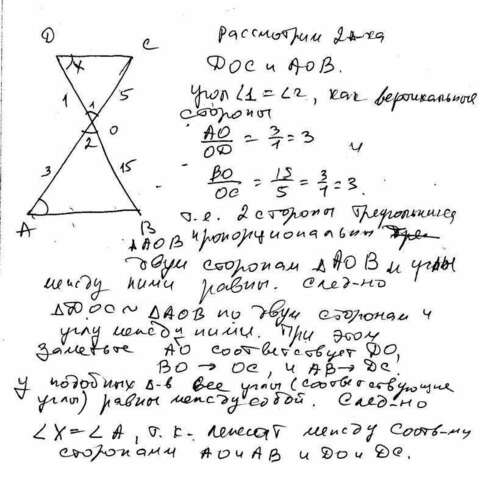 D C
Рассмотрим 2 Δ-ка
DOC и AOB.
угол ∠1 = ∠2, как вертикальные
стороны
AO/OD = 3/1 = 3 и
BO/OC = 15/5 = 3/1 = 3.
x
1 1 5
2 O
3 15
A B
т.е. 2 стороны треугольника
ΔAOB пропорциональны
двум сторонам ΔAOB и углы
между ними равны. След-но
ΔDOC ~ ΔAOB по двум сторонам и
углу между ними. При этом
заметьте AO соответствует DO,
BO → OC, и AB → DC.
У подобных Δ-в все углы (соответствующие
углы) равны между собой. След-но
∠X = ∠A, т.к. лежат между соотв-ми
сторонами AO и AB и DO и DC.